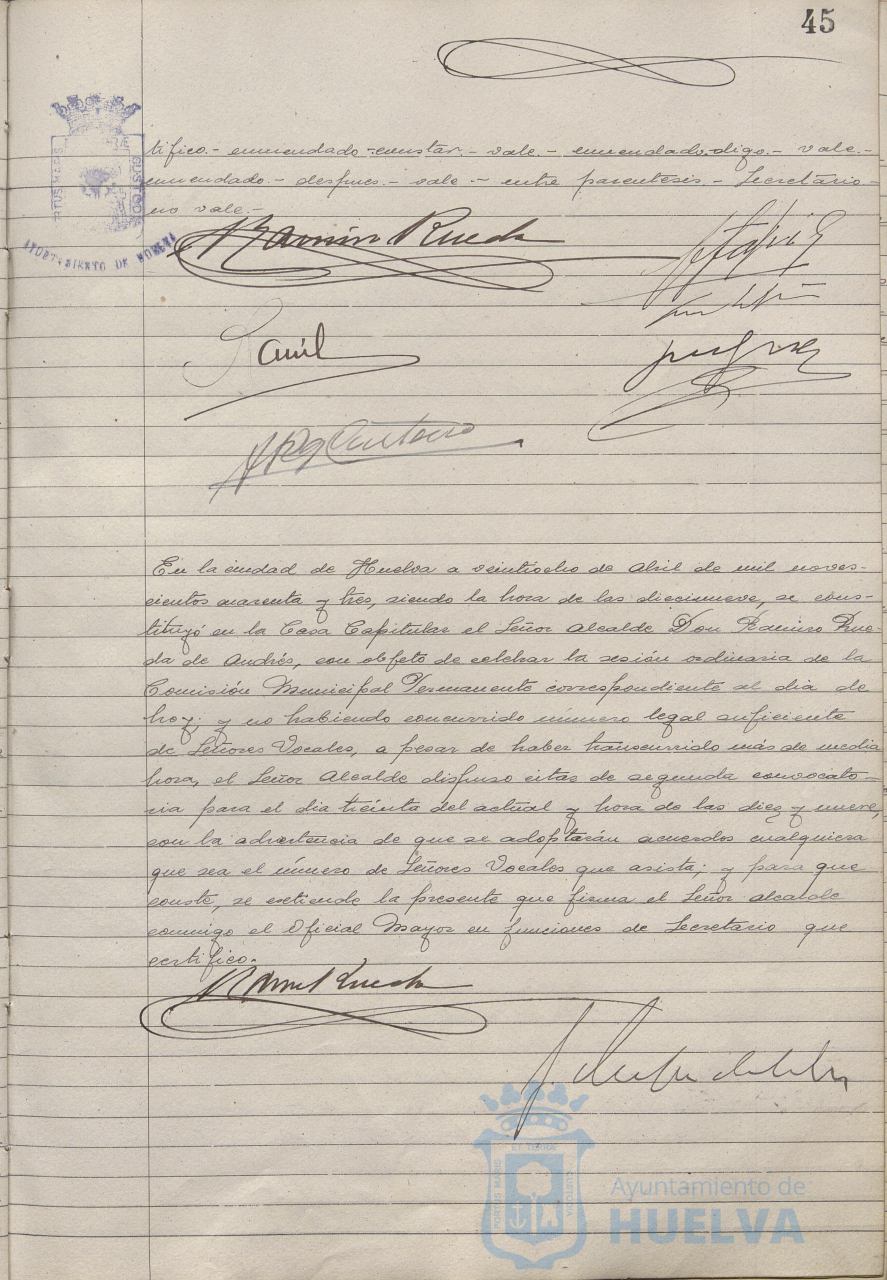 45
tifico.- enmendado-constar.- vale.- enmendado-digo.- vale.-
enmendado.- despues.- vale.- entre parentesis.- Secretario-
no vale.-
Ramiro Rueda
PORTUS MARIS
CUSTODIA
AYUNTAMIENTO DE HUELVA
En la ciudad de Huelva a veintiocho de Abril de mil noves-
cientos cuarenta y tres, siendo la hora de las diecinueve, se cons-
tituyó en la Casa Capitular el Señor Alcalde Don Ramiro Rue-
da de Andrés, con objeto de celebrar la sesión ordinaria de la
Comisión Municipal Permanente correspondiente al dia de
hoy; y no habiendo concurrido número legal suficiente
de Señores Vocales, a pesar de haber transcurrido más de media
hora, el Señor Alcalde dispuso citar de segunda convocato-
ria para el dia treinta del actual y hora de las diez y nueve,
con la advertencia de que se adoptarán acuerdos cualquiera
que sea el número de Señores Vocales que asista; y para que
conste, se extiende la presente que firma el Señor Alcalde
conmigo el Oficial Mayor en funciones de Secretario que
certifico.
Ramiro Rueda
PORTUS MARIS
ET TERRAE
CUSTODIA
Ayuntamiento de
HUELVA